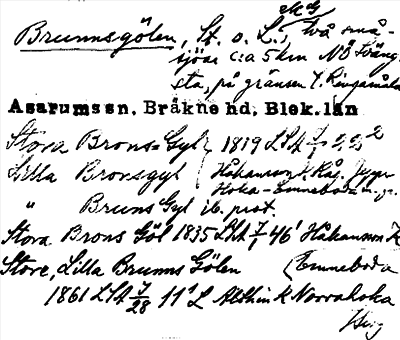 Brunnsgölen, St. o. L., två små-
sjöar c:a 5 km NO Sväng-
sta, på gränsen t. Ringamåla
Asarums sn, Bräkne hd, Blek. län
Stora Brons Gyl 1819 LSA
Lilla Bronsgyl Håkanson k.
" Bruns Gyl ib. prot.
Stora Brons Göl 1835 46' Håkanson k
Store, Lilla Brunns Gölen Emneboda
1861 LSA 7/28 11' L Althin k Norrahoka